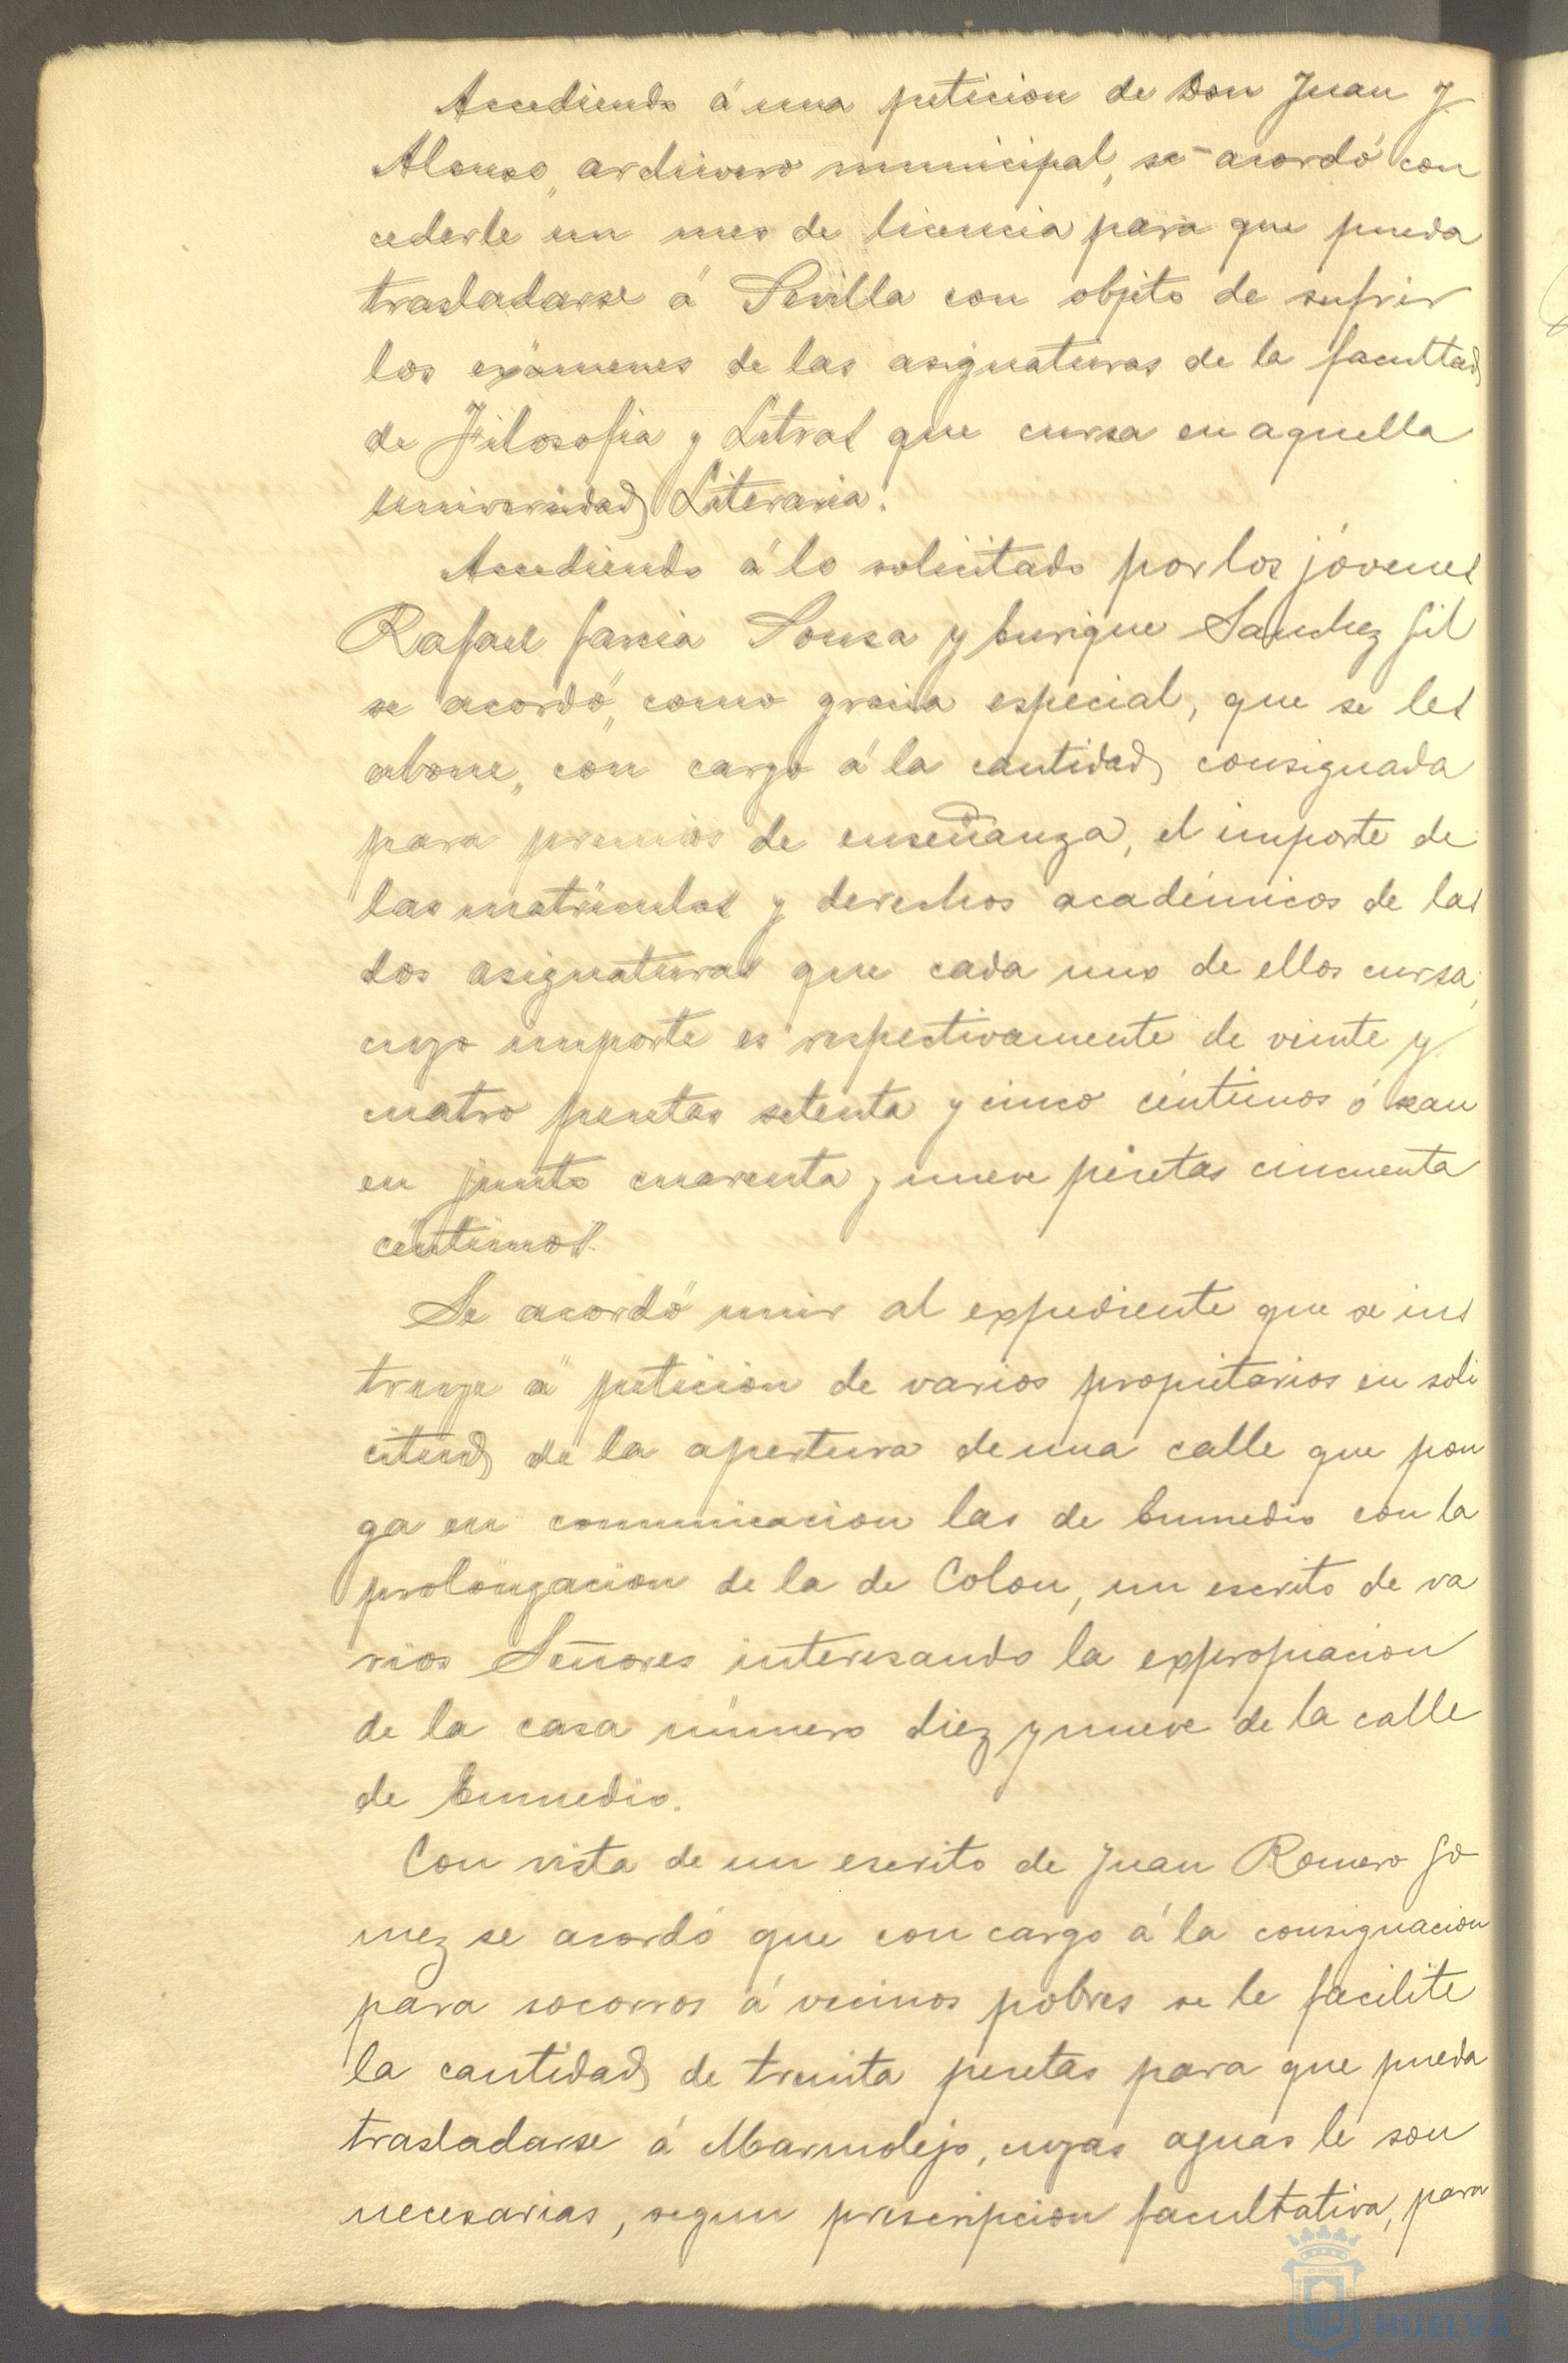 Accediendo á una peticion de Don Juan J.
Alonso, archivero municipal, se acordó con
cederle un mes de licencia para que pueda
trasladarse á Sevilla con objeto de sufrir
los exámenes de las asignaturas de la facultad
de Filosofia y Letras que cursa en aquella
universidad Literaria.
Accediendo á lo solicitado por los jóvenes
Rafael Garcia Sousa y Enrique Sanchez Gil
se acordó, como gracia especial, que se les
abone, con cargo á la cantidad consignada
para premios de enseñanza, el importe de
las matrículas y derechos académicos de las
dos asignaturas que cada uno de ellos cursa,
cuyo importe es respectivamente de veinte y
cuatro pesetas setenta y cinco céntimos ó sean
en junto cuarenta y nueve pesetas cincuenta
céntimos.
Se acordó unir al expediente que se ins
truye á peticion de varios propietarios en soli
citud de la apertura de una calle que pon
ga en comunicacion las de Enmedio con la
prolongacion de la de Colon, un escrito de va
rios Señores interesando la expropiacion
de la casa número diez y nueve de la calle
de Enmedio.
Con vista de un escrito de Juan Romero Go
mez se acordó que con cargo á la consignacion
para socorros á vecinos pobres se le facilite
la cantidad de treinta pesetas para que pueda
trasladarse á Marmolejo, cuyas aguas le son
necesarias, segun prescripcion facultativa, para
HUELVA